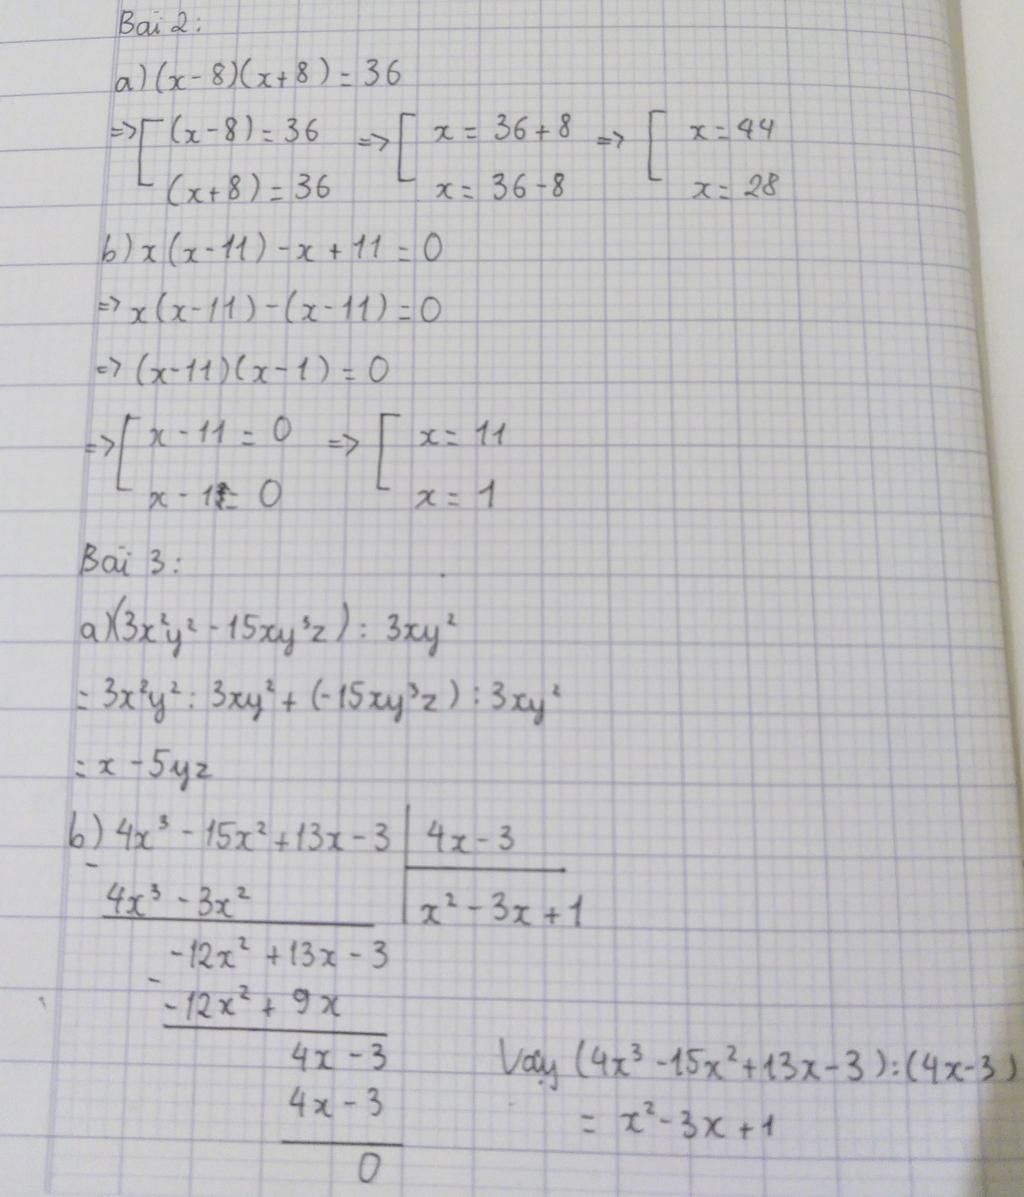 Bài 2:
a) (x-8)(x+8) = 36
=> [ (x-8) = 36 => [ x = 36+8 => [ x = 44
(x+8) = 36 x = 36-8 x = 28
b) x(x-11) - x + 11 = 0
=> x(x-11) - (x-11) = 0
=> (x-11)(x-1) = 0
=> [ x - 11 = 0 => [ x = 11
x - 1 = 0 x = 1
Bài 3:
a) (3x²y² - 15xy³z) : 3xy²
= 3x²y² : 3xy² + (-15xy³z) : 3xy²
= x - 5yz
b) 4x³ - 15x² + 13x - 3 | 4x - 3
-
4x³ - 3x² | x² - 3x + 1
-12x² + 13x - 3
-
-12x² + 9x
4x - 3
4x - 3
0
Vậy (4x³ - 15x² + 13x - 3) : (4x-3)
= x² - 3x + 1